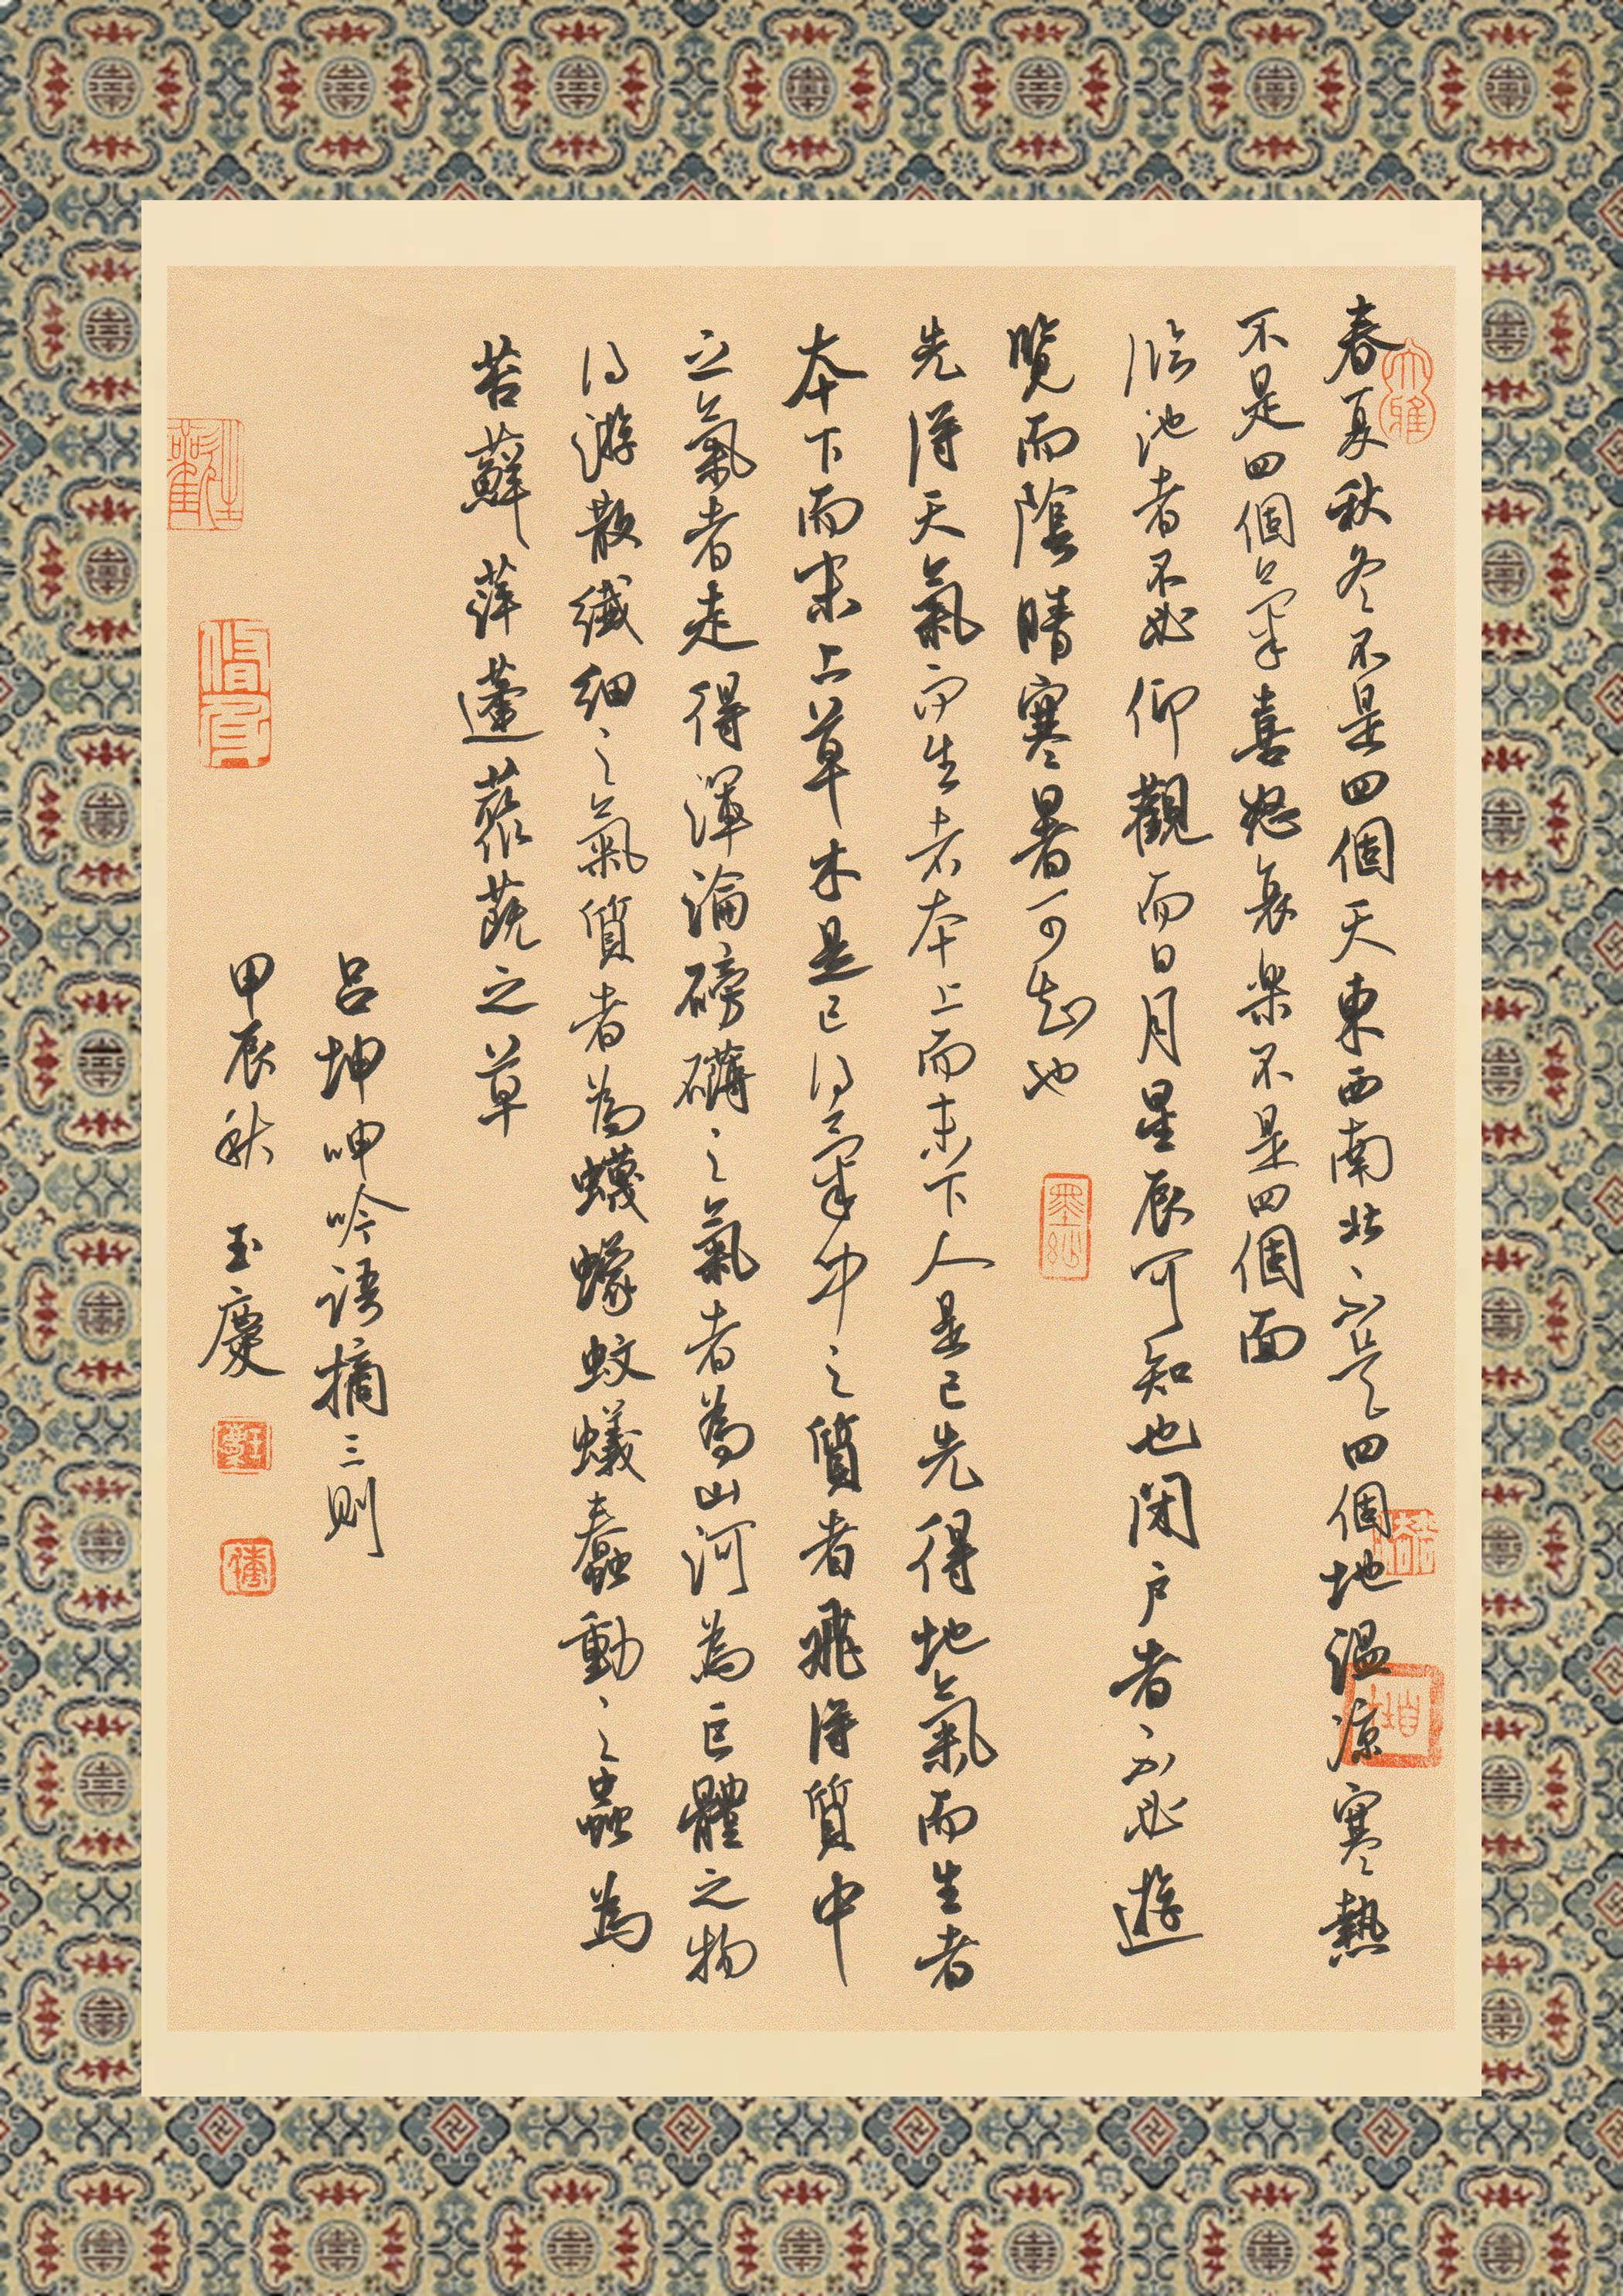 春夏秋冬不是四個天東西南北不是四個地溫涼寒熱
不是四個氣喜怒哀樂不是四個面
臨池者不必仰觀而日月星辰可知也閉戶者不必遊
覽而陰晴寒暑可知也
先得天氣而生者本上而末下人是已先得地氣而生者
本下而末上草木是已得氣中之質者飛得質中
之氣者走得渾淪磅礴之氣者為山河為巨體之物
得游散纖細之氣質者為蠛蠓蚊蟻蠢動之蟲為
苔蘚萍蓬藂蔇之草
呂坤呻吟語摘三則
甲辰秋 玉慶
大雅
墨緣